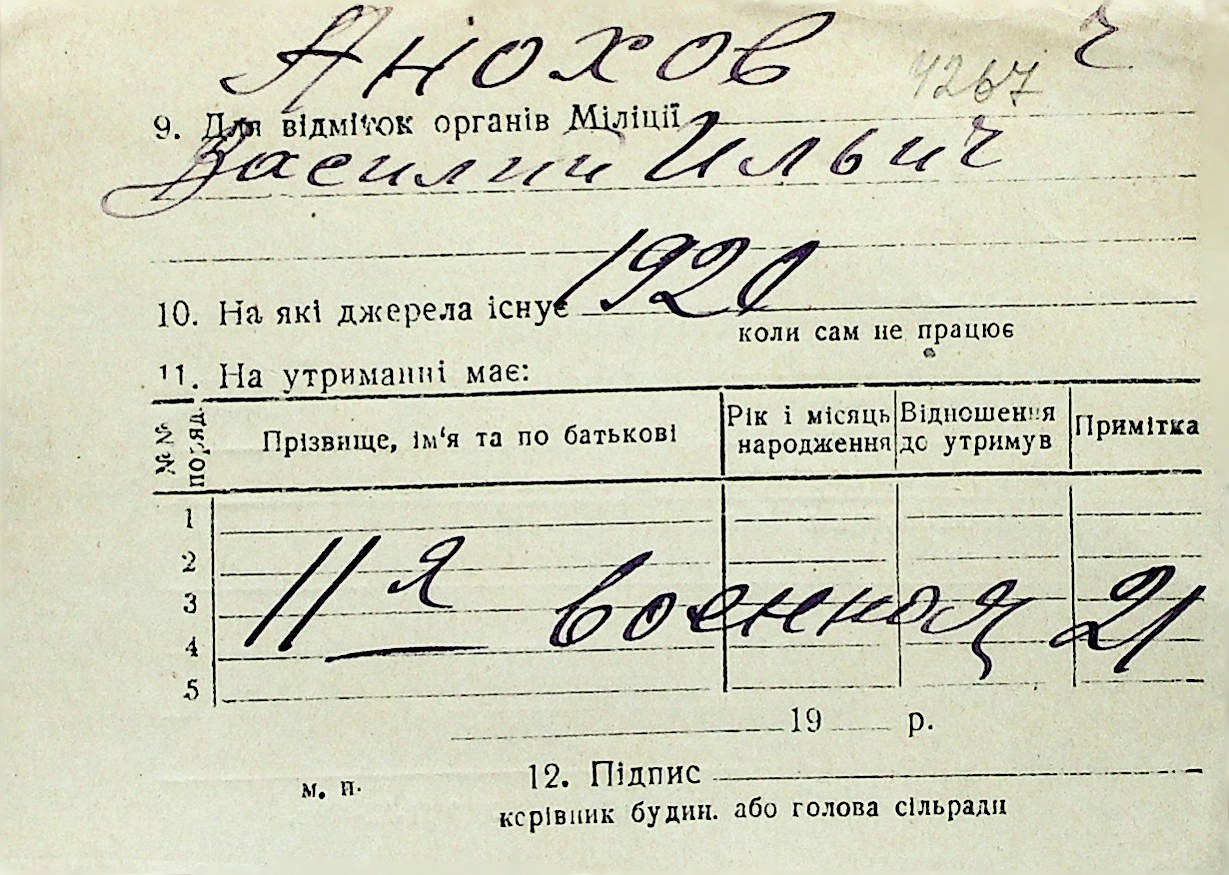 Анохов ч
4267
9. Для відміток органів Міліції
Василий Ильич
1920
10. На які джерела існує
коли сам не працює
11. На утриманні має:
№№ поряд. Прізвище, ім'я та по батькові Рік і місяць народження Відношення до утримув Примітка
1
2
11 я военная 21
3
4
5
19 р.
м. п. 12. Підпис
керівник будин. або голова сільради